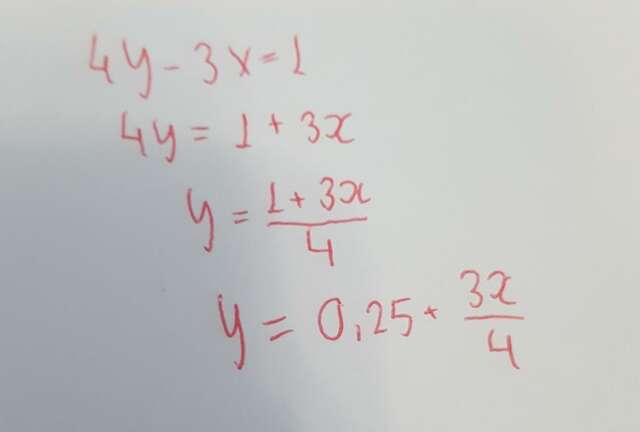 4y - 3x = 1
4y = 1 + 3x
y = (1 + 3x)/4
y = 0,25 + 3x/4